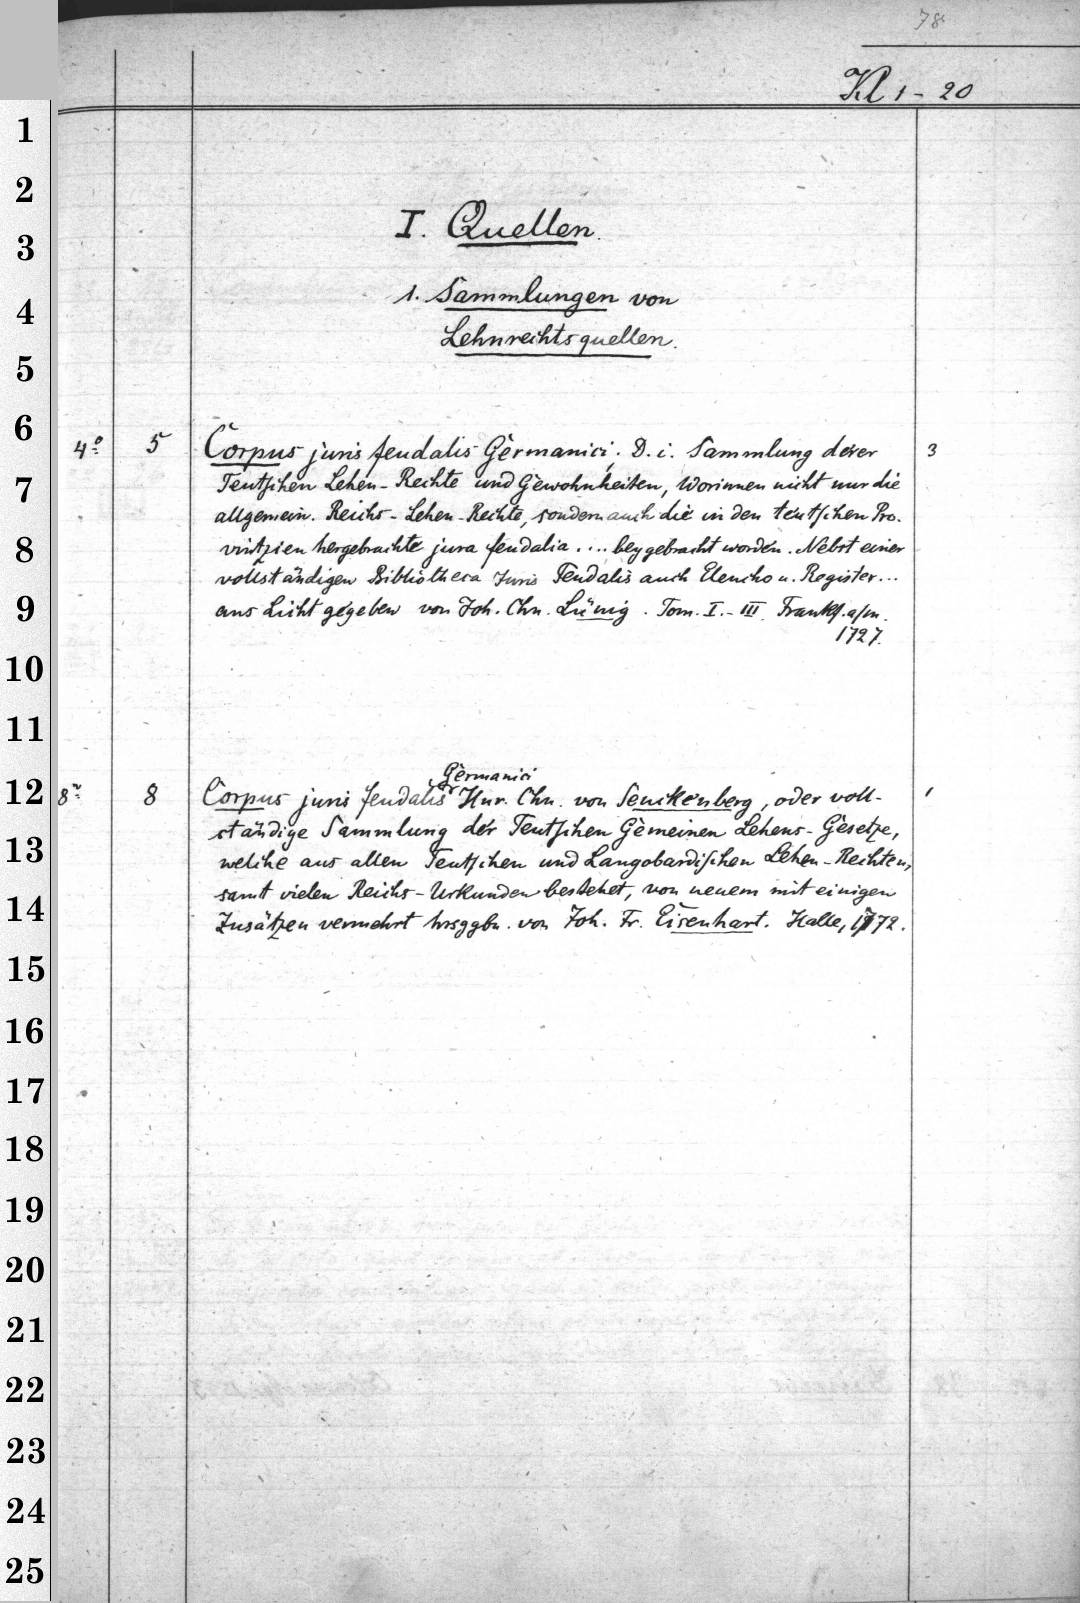 78
Kl 1-20
1
2
I. Quellen.
3
1. Sammlungen von
4
Lehnrechtsquellen.
5
6
4° 5 Corpus juris feudalis Germanici; D. i. Sammlung derer 3
Teutschen Lehen-Rechte und Gewohnheiten, Worinnen nicht nur die
7
allgemein. Reichs-Lehen-Rechte, sondern auch die in den teutschen Pro-
8
vintzien hergebrachte jura feudalia .... beygebracht worden. Nebst einer
vollständigen Bibliotheca Juris Feudalis auch Elencho u. Register...
9
ans Licht gegeben von Joh. Chn. Lünig. Tom. I.-III. Frankf. a/m.
1727.
10
11
Germanici
12
8° 8 Corpus juris feudalis Hnr. Chn. von Senckenberg, oder voll- 1
ständige Sammlung der Teutschen Gemeinen Lehens-Gesetze,
13
welche aus allen Teutschen und Langobardischen Lehen-Rechten,
samt vielen Reichs-Urkunden bestehet, von neuem mit einigen
14
Zusätzen vermehrt hrsggbn. von Joh. Fr. Eisenhart. Halle, 1772.
15
16
17
18
19
20
21
22
23
24
25